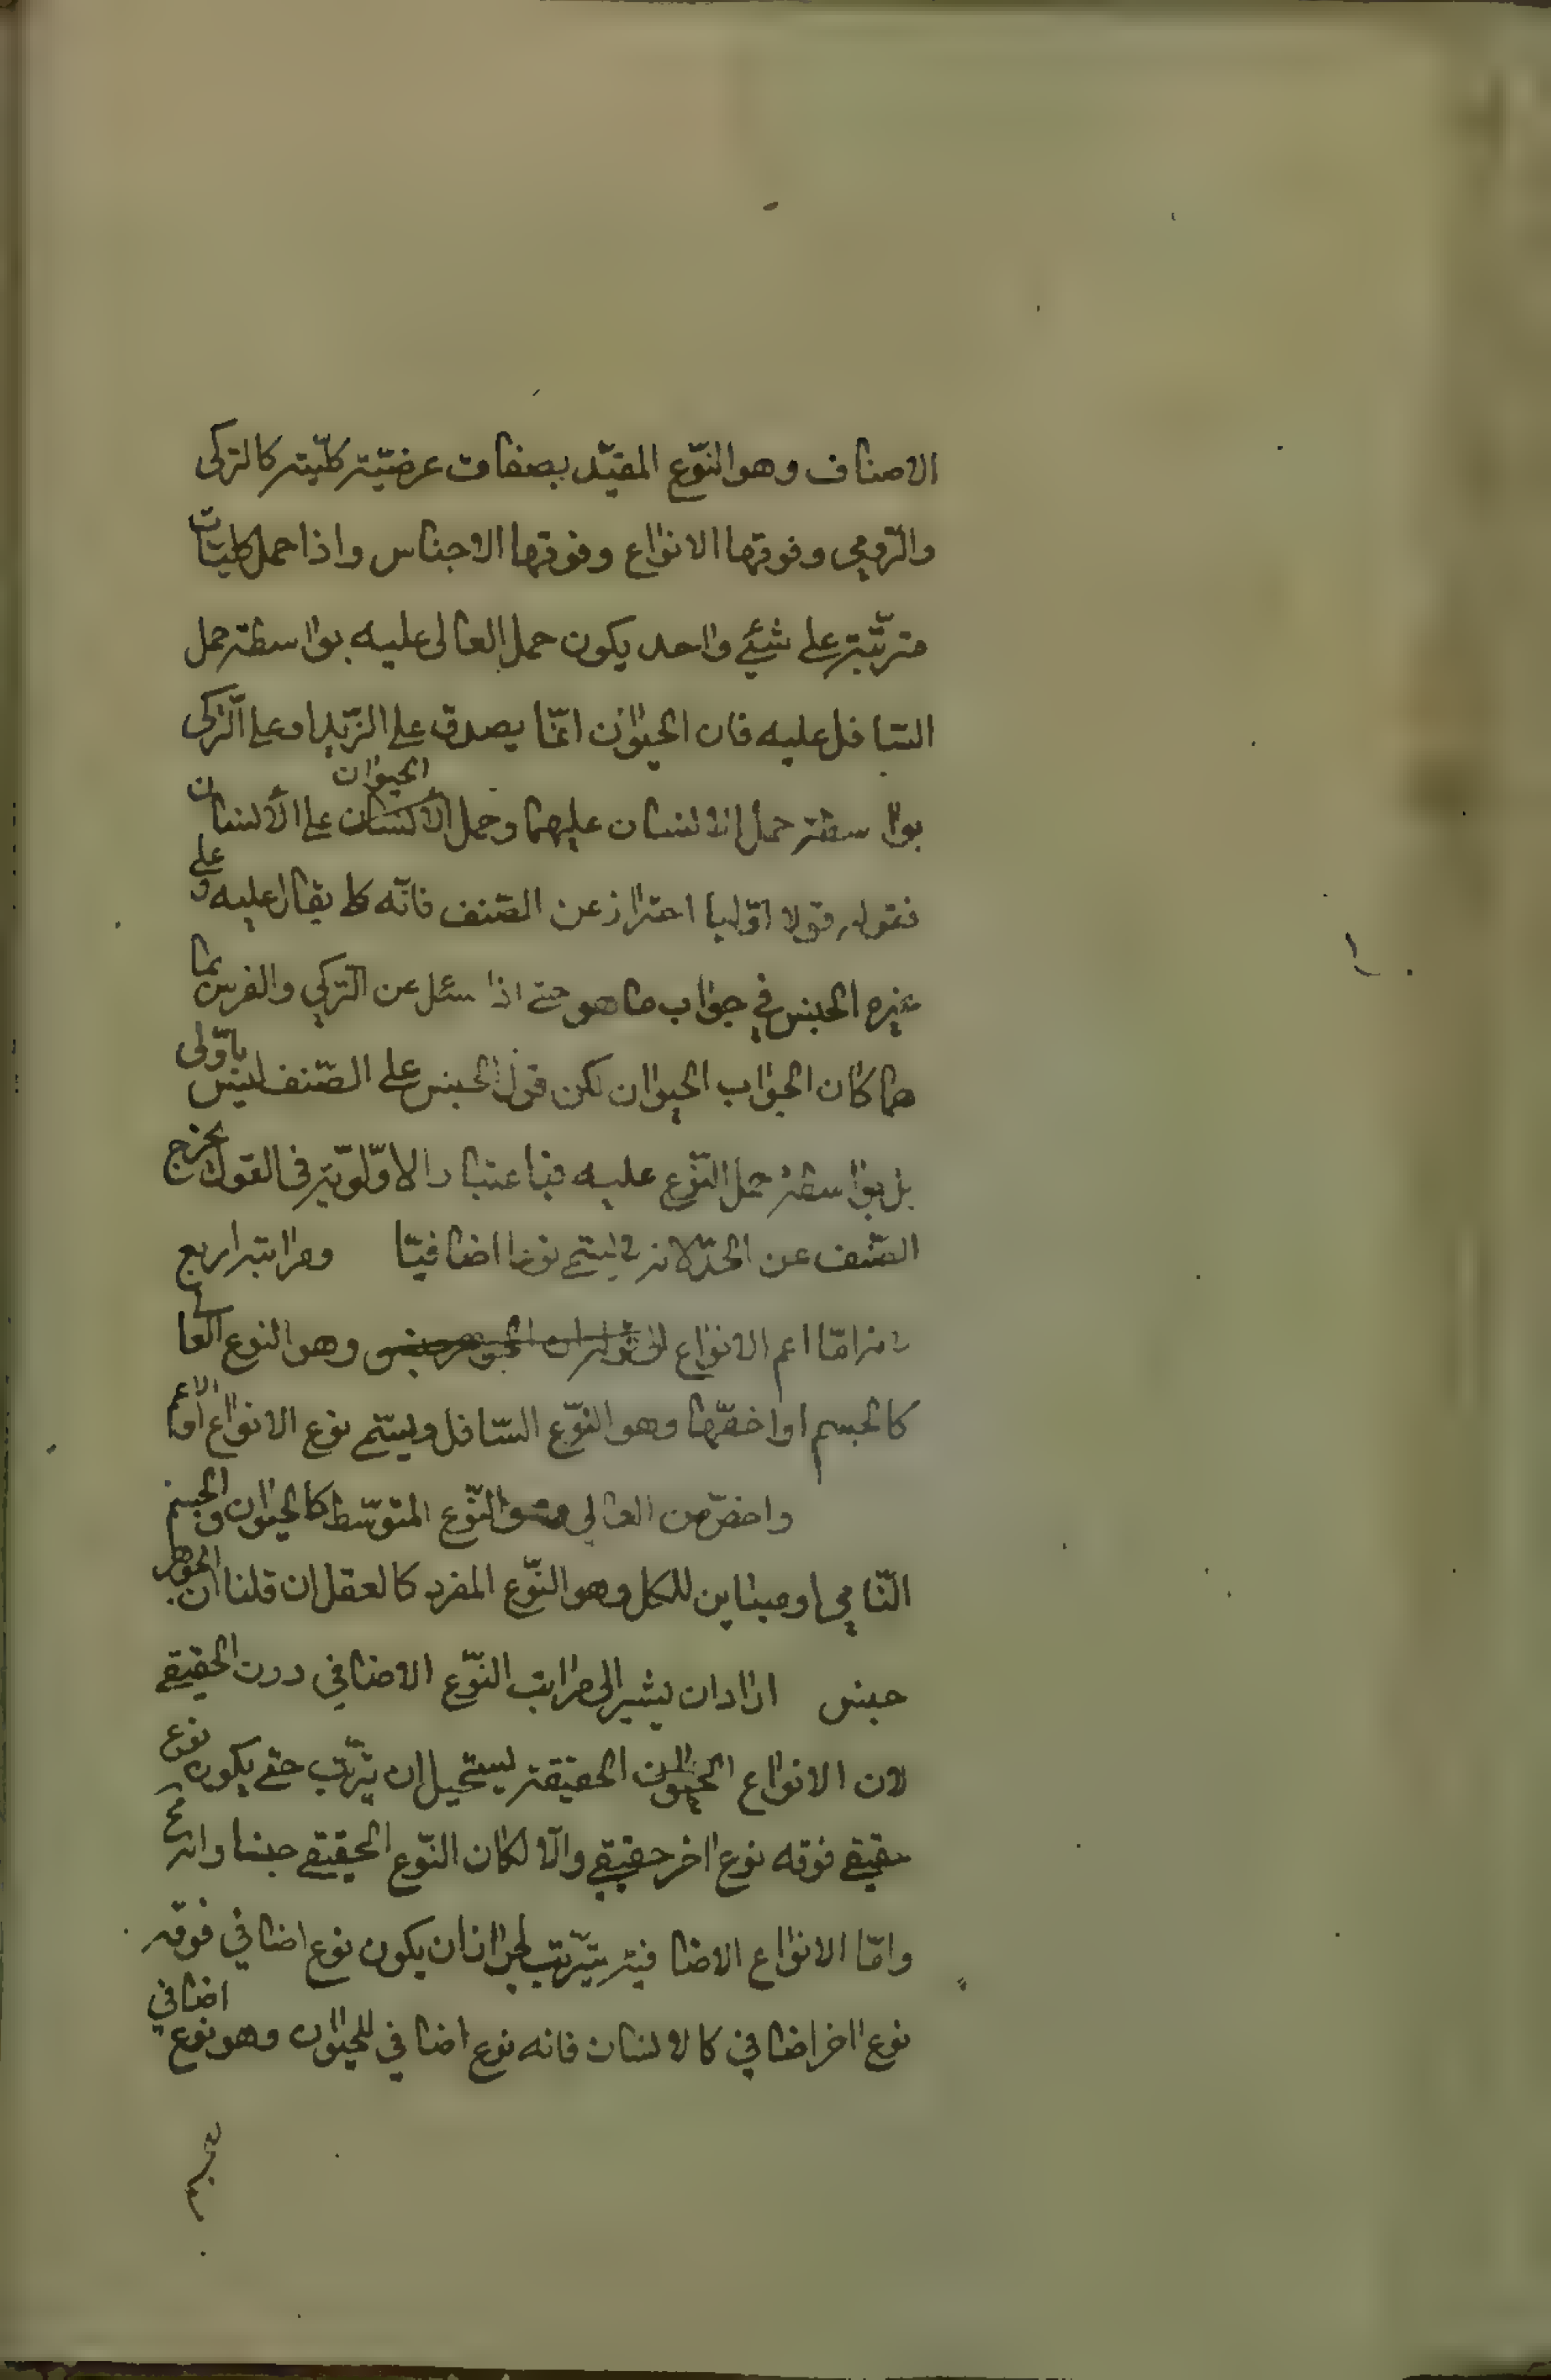 الاصناف وهو النّوع المقيّد بصفات عرضيّة كلّية كالتركى
والرّومي وفوقها الانواع وفوقها الاجناس واذا حمل كليّات
مترتّبة على شيئ واحد يكون حمل العالى عليه بواسطة حمل
السّافل عليه فان الحيوان انّما يصدق على الزّيد او على التّركى
بواسطة حمل الانسان عليهما وحمل الحيوان على الانسان
فقوله قولا اوّليا احتراز عن الصّنف فانّه كلى يقال عليه وعلى
غيره الجنس في جواب ما هو حتى اذا سئل عن التّركي والفرس بما
هما كان الجواب الحيوان لكن قول الجنس على الصّنف ليس باوّلى
بل بواسطة حمل النّوع عليه فباعتبار الاوّلويّة فى القول يخرج
الصّنف عن الحدّ لانه لا يسمّى نوعا اضافيّا ومراتبه اربع
لانه امّا اعم الانواع وهو النوع العالى
كالجسم او اخصّها وهو النّوع السّافل ويسمّى نوع الانواع او اعم
واخصّ من العالي وهو النّوع المتوسّط كالحيوان والجسم
النّامي او مباين للكل وهو النّوع المفرد كالعقل ان قلنا ان الجوهر
جنس اراد ان يشير الى مراتب النّوع الاضافي دون الحقيقى
لان الانواع الحقيقة يستحيل ان يترتّب حتى يكون نوع
حقيقى فوقه نوع اخر حقيقي والّا لكان النّوع الحقيقى جنسا وانه مح
وامّا الانواع الاضافية يترتّب لجواز ان يكون نوع اضافي فوقه
نوع اخر اضافي كالانسان فانه نوع اضافي للحيوان وهو نوع اضافي